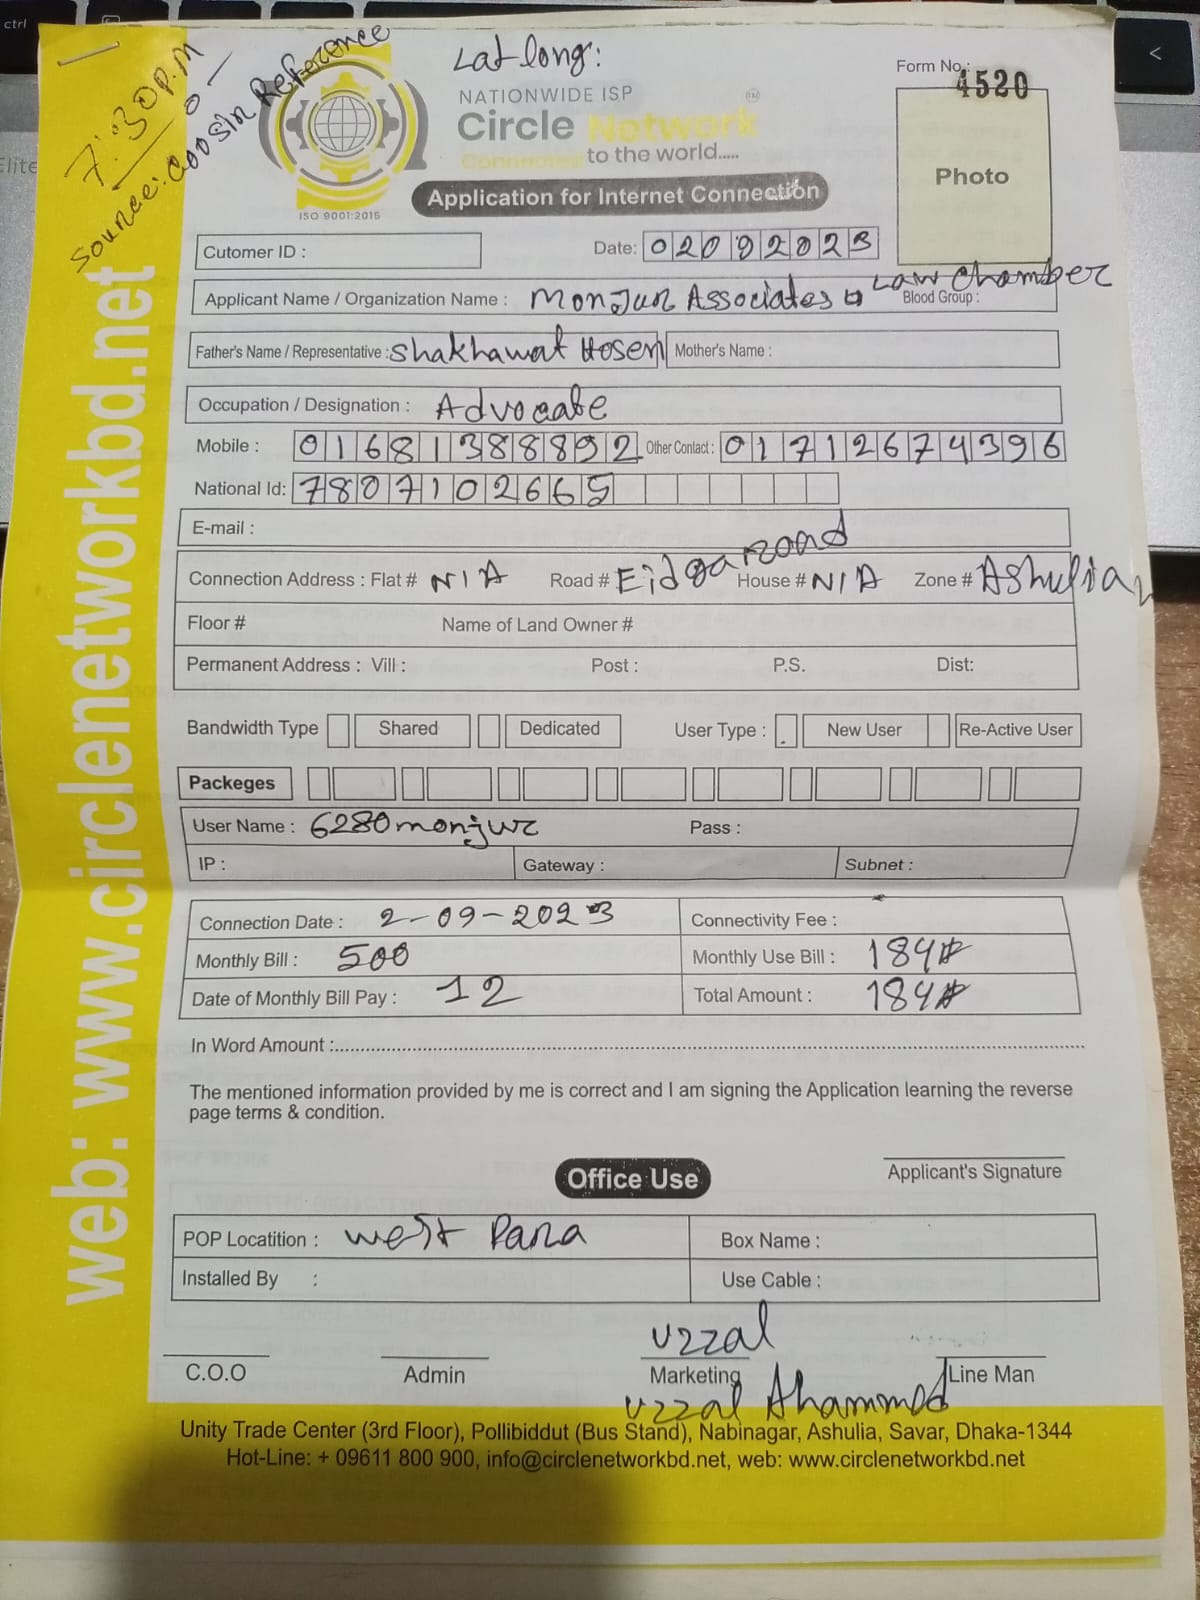 7:30 P.M
Source: Coosin Reference
Lat long:
Form No.: 4520
NATIONWIDE ISP
Circle Network
Connected to the world.....
ISO 9001:2015
Application for Internet Connection
Photo
Cutomer ID :
Date: 02092023
Applicant Name / Organization Name : Monjur Associates Law Chamber
Blood Group :
Father's Name / Representative : Shakhawat Hosen Mother's Name :
Occupation / Designation : Advocate
Mobile : 01681388892 Other Contact : 01712674396
National Id: 7807102665
E-mail :
Connection Address : Flat # N/A Road # Eidga road House # N/A Zone # Ashulia
Floor # Name of Land Owner #
Permanent Address : Vill : Post : P.S. Dist:
Bandwidth Type Shared Dedicated User Type : New User Re-Active User
Packeges
User Name : 6280monjur Pass :
IP : Gateway : Subnet :
Connection Date : 2-09-2023 Connectivity Fee :
Monthly Bill : 500 Monthly Use Bill : 184#
Date of Monthly Bill Pay : 12 Total Amount : 184#
In Word Amount :
The mentioned information provided by me is correct and I am signing the Application learning the reverse
page terms & condition.
Applicant's Signature
Office Use
POP Locatition : West Para Box Name :
Installed By : Use Cable :
Uzzal
C.O.O Admin Marketing Line Man
Uzzal Ahammed
Unity Trade Center (3rd Floor), Pollibiddut (Bus Stand), Nabinagar, Ashulia, Savar, Dhaka-1344
Hot-Line: + 09611 800 900, info@circlenetworkbd.net, web: www.circlenetworkbd.net
web: www.circlenetworkbd.net
ctrl
<
Elite